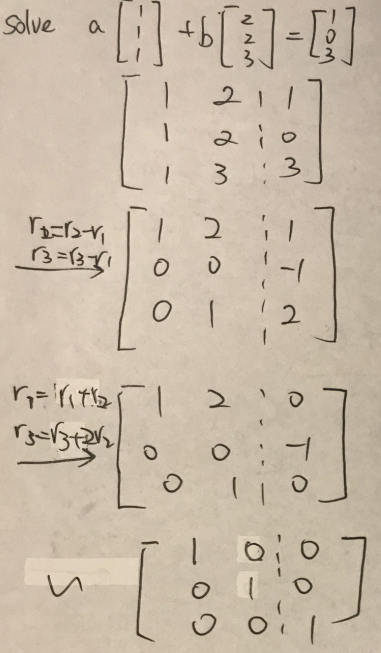 Solve a [1 1 1] + b [2 2 3] = [1 0 3]
[ 1 2 ¦ 1
1 2 ¦ 0
1 3 ¦ 3 ]
r2=r2-r1 [ 1 2 ¦ 1
r3=r3-r1 0 0 ¦ -1
0 1 ¦ 2 ]
r1=r1+r2 [ 1 2 ¦ 0
r3=r3+2r2 0 0 ¦ -1
0 1 ¦ 0 ]
~ [ 1 0 ¦ 0
0 1 ¦ 0
0 0 ¦ 1 ]